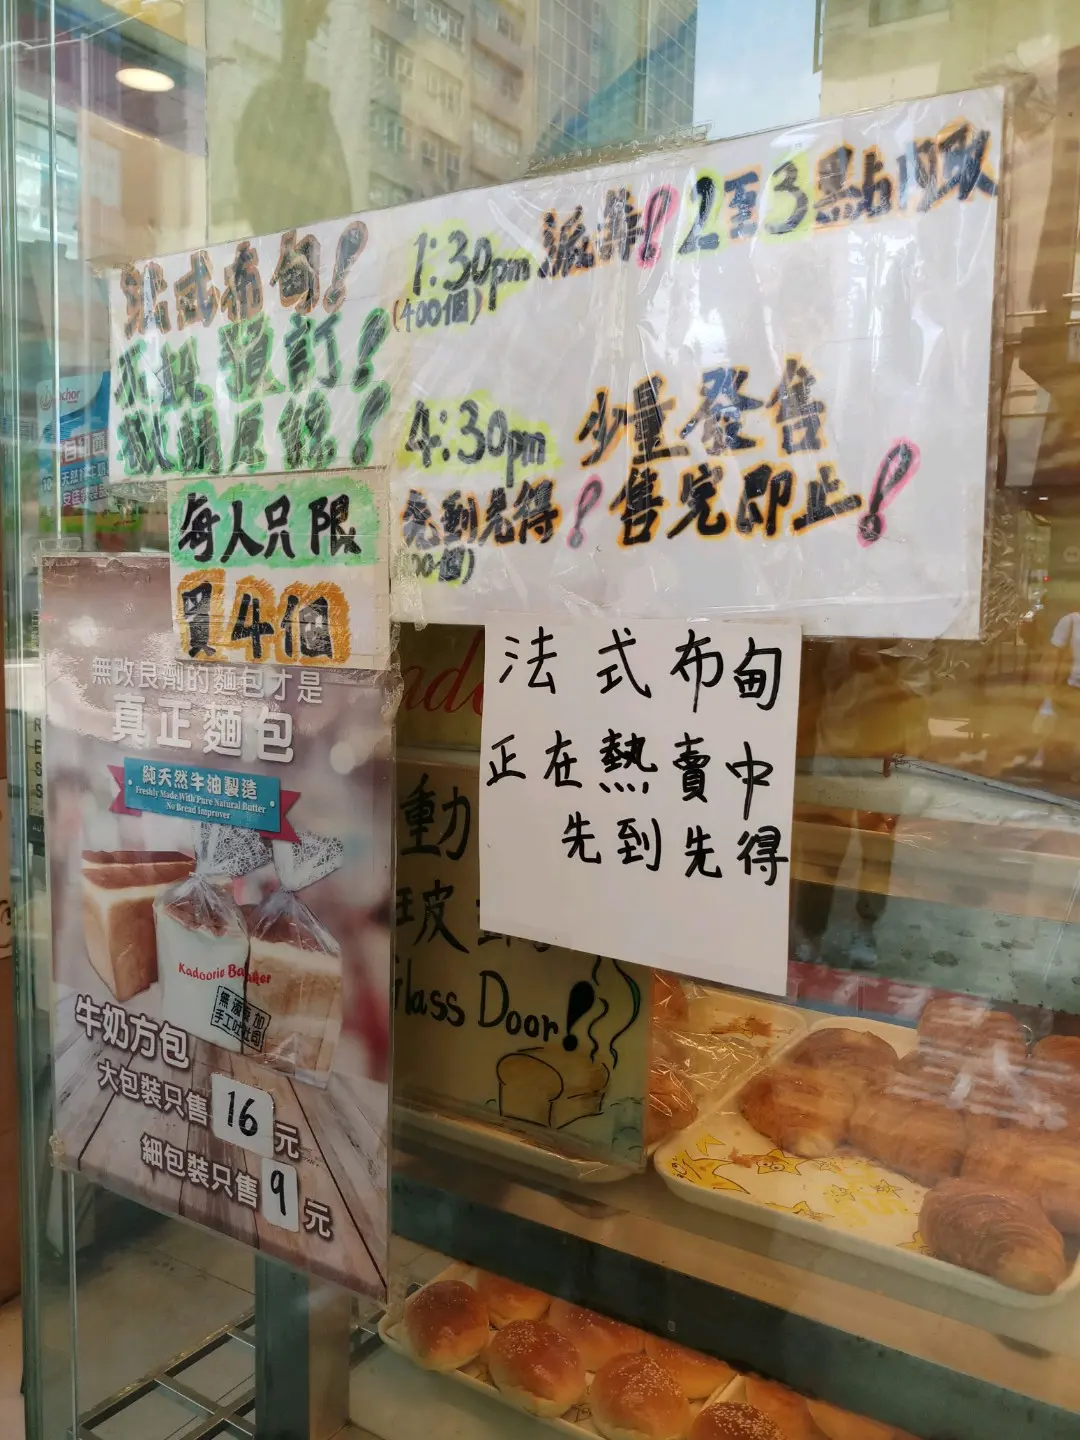 法式布甸!
不設預訂!
敬請原諒!
1:30pm 派籌! 2至3點內取
(400個)
4:30pm 少量發售
先到先得! 售完即止!
(100個)
每人只限
買4個
法式布甸
正在熱賣中
先到先得
無改良劑的麵包才是
真正麵包
純天然牛油製造
Freshly Made With Pure Natural Butter
No Bread Improver
Kadoorie Banker
手工吐司
牛奶方包
大包裝只售 16 元
細包裝只售 9 元
動
玻
Glass Door!